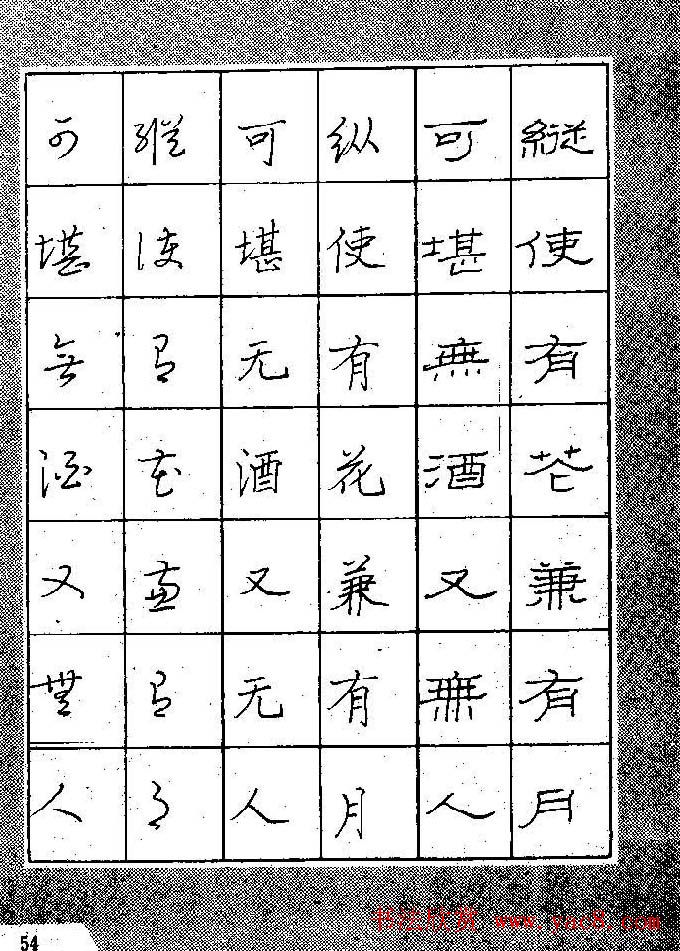 縦使有花兼有月
可堪無酒又無人
纵使有花兼有月
可堪无酒又无人
縱使有花兼有月
可堪無酒又無人
54
书法欣赏 www.yac8.com